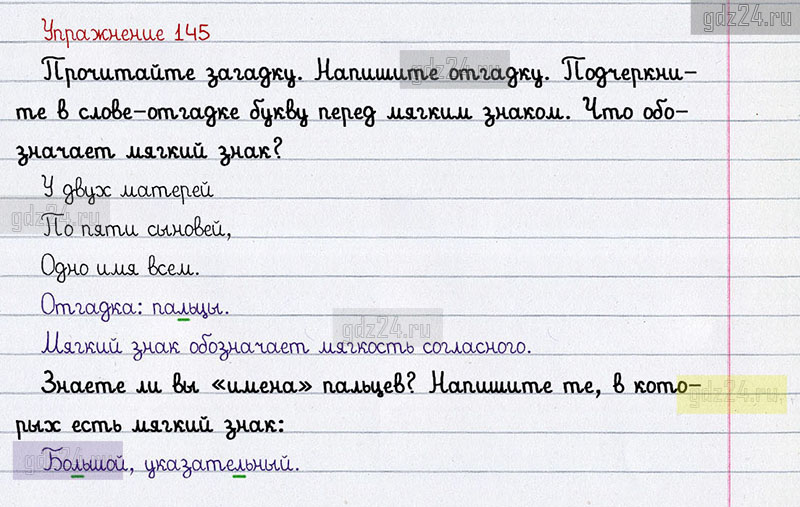 gdz24.ru
Упражнение 145
Прочитайте загадку. Напишите отгадку. Подчеркни-
gdz24.ru
те в слове-отгадке букву перед мягким знаком. Что обо-
значает мягкий знак?
У двух матерей
gdz24.ru
По пяти сыновей,
Одно имя всем.
Отгадка: пальцы.
gdz24.ru
Мягкий знак обозначает мягкость согласного.
Знаете ли вы «имена» пальцев? Напишите те, в кото-
gdz24.ru
рых есть мягкий знак:
Большой, указательный.
gdz24.ru